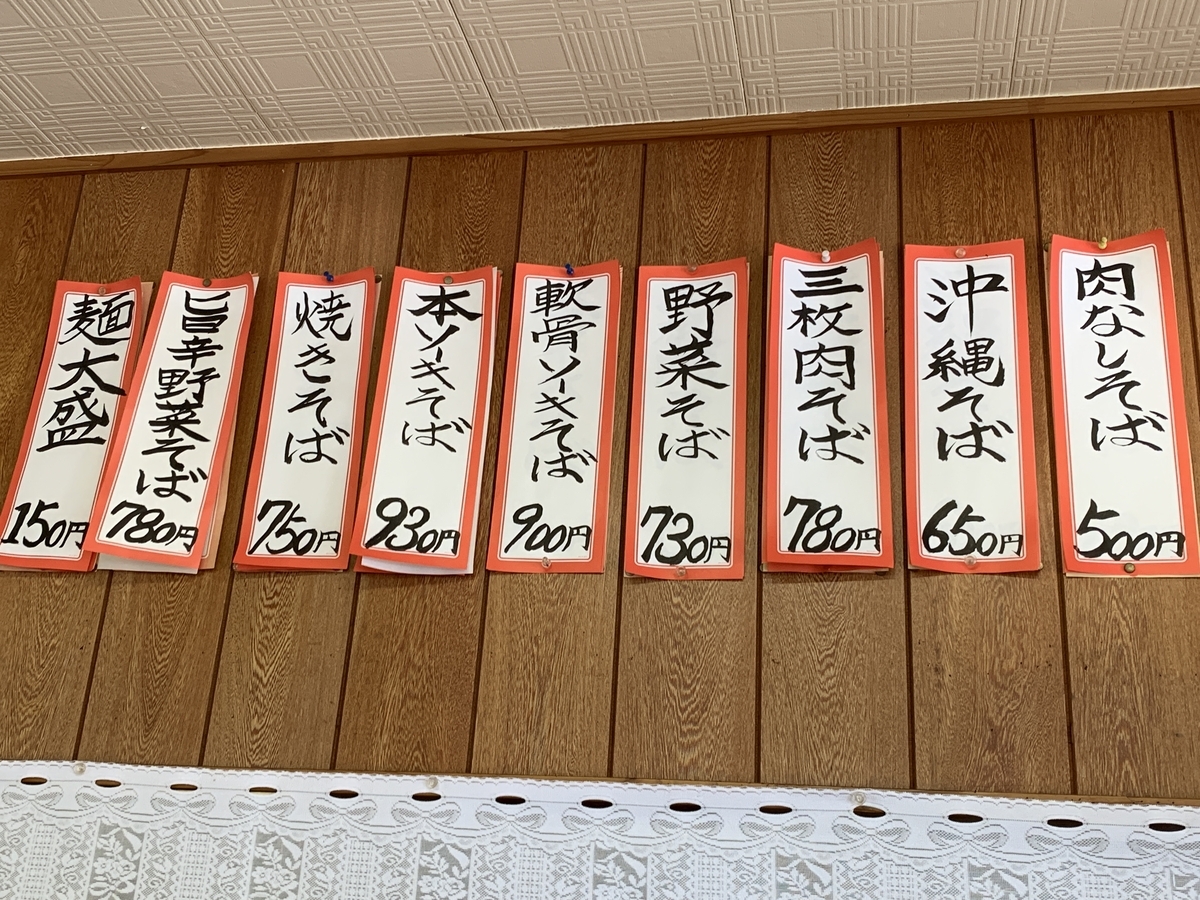 肉なしそば
500円
沖縄そば
650円
三枚肉そば
780円
野菜そば
730円
軟骨ソーキそば
900円
本ソーキそば
930円
焼きそば
750円
旨辛野菜そば
780円
麺大盛
150円